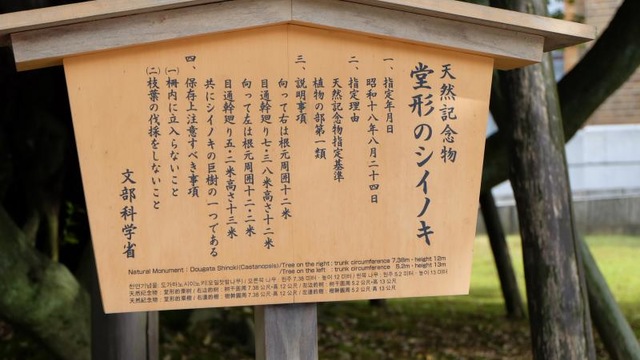 天然記念物
堂形のシイノキ
一、指定年月日
昭和十八年八月二十四日
二、指定理由
天然記念物指定基準
植物の部第一類
三、説明事項
向って右は根元周囲十二米
目通幹廻り七・三八米高さ十二米
向って左は根元周囲十二・二米
目通幹廻り五・二米高さ十三米
共にシイノキの巨樹の一つである
四、保存上注意すべき事項
(一)柵内に立入らないこと
(二)枝葉の伐採をしないこと
文部科学省
Natural Monument : Dougata Shinoki(Castanopsis)/Tree on the right : trunk circumference 7.38m・height 12m
/Tree on the left : trunk circumference 5.2m・height 13m